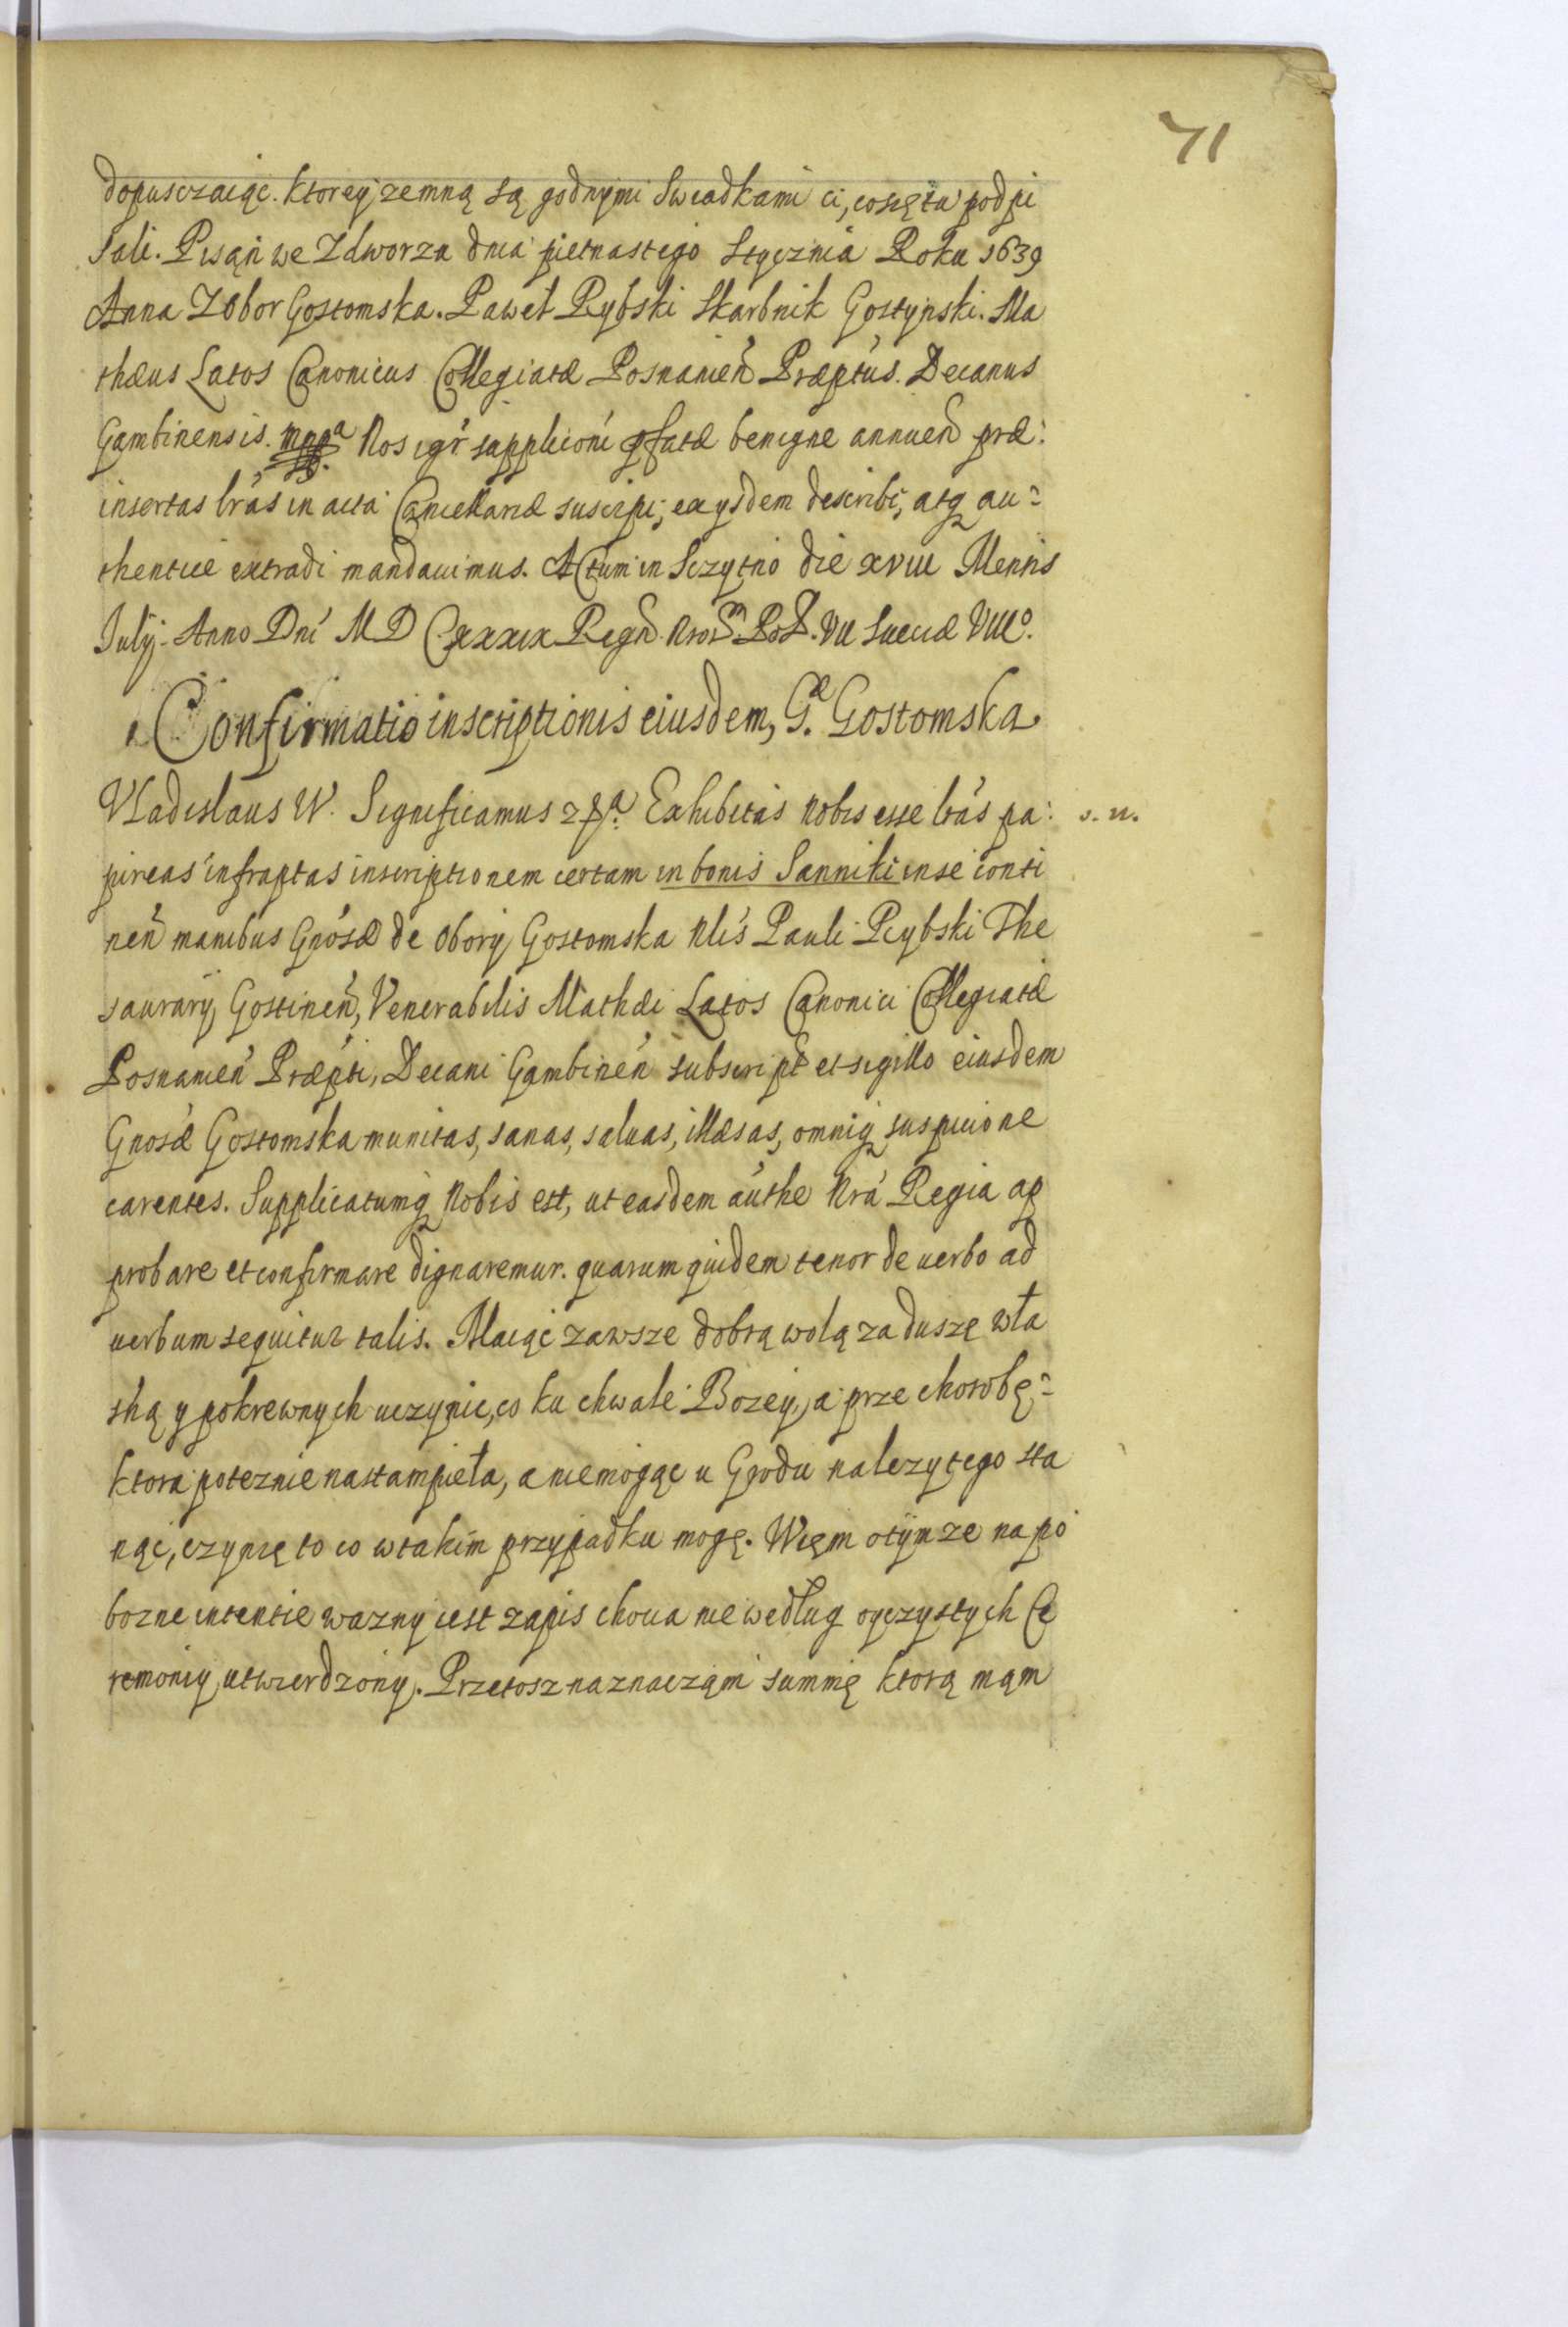 71
dopusczaiąc. ktorey zemną są godnymi swiadkami ci, cosię tu podpi
sali. Pisąn we Zdworzu dnia pietnastego Stycznia Roku 1639
Anna Zobor Gostomska. Paweł Rybski Skarbnik Gostynski. Ma
thæus Latos Canonicus Collegiatæ Posnanień Præptus. Decanus
Gambinensis. mppa Nos igr suppliconi pfatæ benigne annueñ præ:
insertas lrás in acta Cancellariæ suscipi, ex ysdem describi, atq au=
thenticè extradi mandauimus. Actum in Sczytno die XVIII Mensis
July. Anno Dni M D CXXXIX Regñ. Nror. Pol. VII Sueciæ VIIIo.
Confirmatio inscriptionis eiusdem, Gæ. Gostomska
Vladislaus IV. Significamus Exhibitas Nobis esse lrás pa: s. n.
pireas infraptas inscriptionem certam in bonis Sanniki inse conti
neñ manibus Gnósæ de Obory Gostomska Nlis Pauli Rybski The
saurary Gostineñ, Venerabilis Mathæi Latos Canonici Collegiatæ
Posnanień Præpti, Decani Gambineń subscript et sigillo eiusdem
Gnosæ Gostomska munitas, sanas, saluas, illæsas, omniq suspicione
carentes. Supplicatumq Nobis est, ut easdem authe Nrá Regia ap
probare et confirmare dignaremur. quarum quidem tenor de uerbo ad
uerbum sequitur talis. Maiąc zawsze dobrą wolą za duszę wła
sną y pokrewnych uczynic, co ku chwale Bozey, a prze chorobę=
ktora poteznie nastampieła, a niemogąc u Grodu nalezytego sta
nąc, czynię to co wtakim przypadku mogę. Więm otym ze na po
bozne intentie wazny iest zapis choua nie według oyczystych Ce
remoniy utwierdzony. Przetosz naznacząm summę ktorą mąm